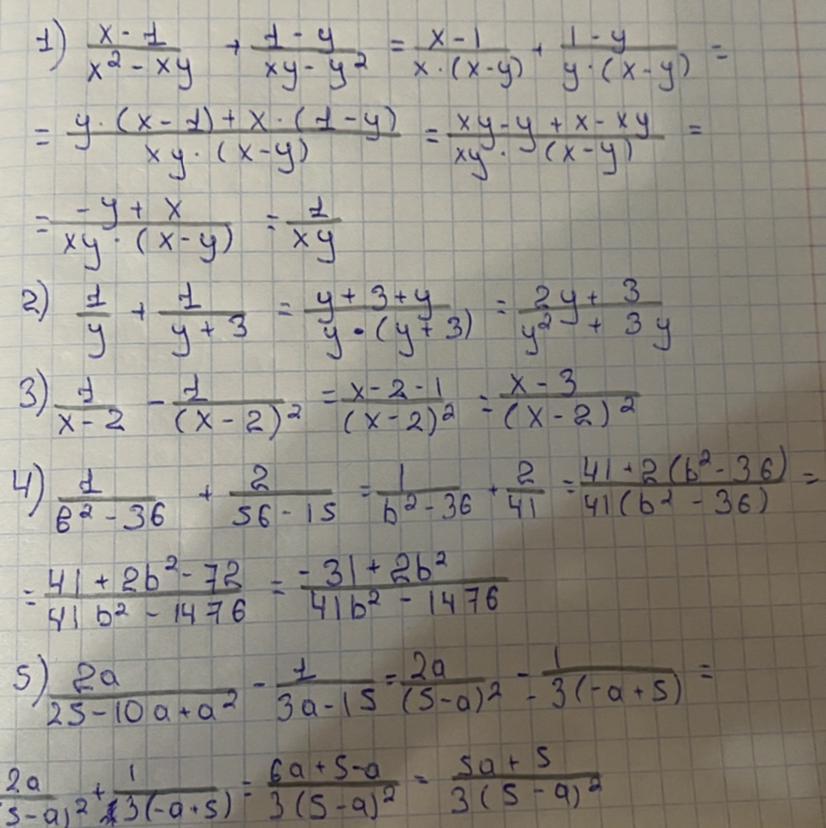 1) (x - 1)/(x² - xy) + (1 - y)/(xy - y²) = (x - 1)/(x · (x - y)) + (1 - y)/(y · (x - y)) =
= (y · (x - 1) + x · (1 - y))/(xy · (x - y)) = (xy - y + x - xy)/(xy · (x - y)) =
= (-y + x)/(xy · (x - y)) = 1/(xy)
2) 1/y + 1/(y + 3) = (y + 3 + y)/(y · (y + 3)) = (2y + 3)/(y² + 3y)
3) 1/(x - 2) - 1/(x - 2)² = (x - 2 - 1)/(x - 2)² = (x - 3)/(x - 2)²
4) 1/(б² - 36) + 2/(56 - 15) = 1/(b² - 36) + 2/41 = (41 + 2(b² - 36))/(41(b² - 36)) =
= (41 + 2b² - 72)/(41b² - 1476) = (-31 + 2b²)/(41b² - 1476)
5) 2a/(25 - 10a + a²) - 1/(3a - 15) = 2a/(5 - a)² - 1/(-3(-a + 5)) =
2a/(5 - a)² + 1/(3(-a + 5)) = (6a + 5 - a)/(3(5 - a)²) = (5a + 5)/(3(5 - a)²)